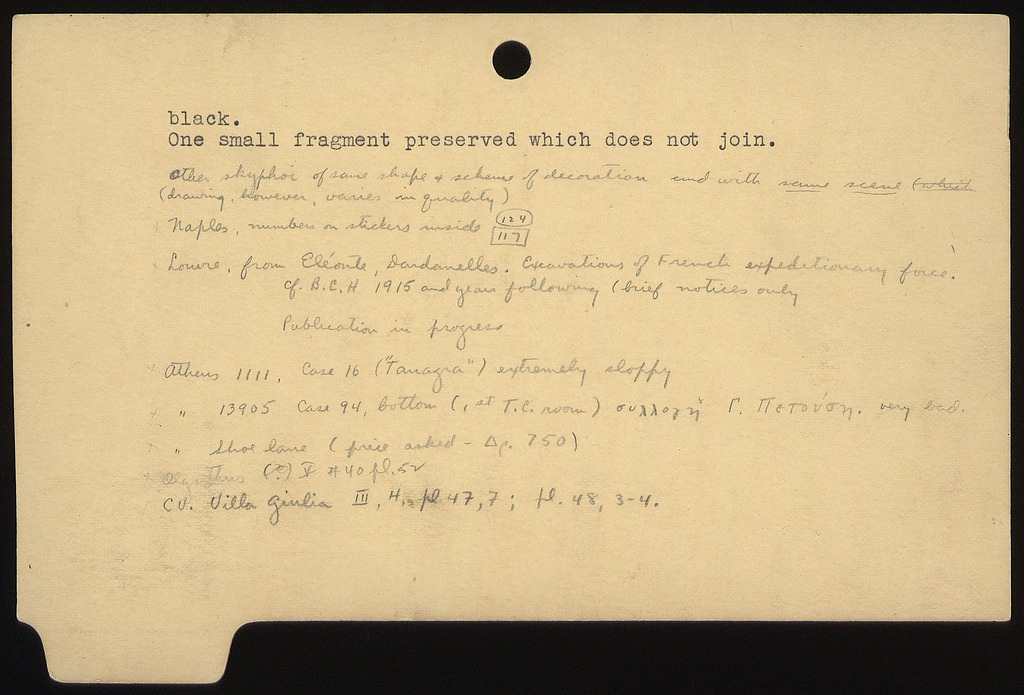 black.
One small fragment preserved which does not join.
other skyphoi of same shape & scheme of decoration and with same scene (which
(drawing, however, varies in quality)
x Naples, numbers on stickers inside 124
117
x Louvre, from Eléonte, Dardanelles. Excavations of French expeditionary force.
cf. B.C.H 1915 and years following (brief notices only
Publication in progress
x Athens 1111, Case 16 ("Tanagra") extremely sloppy
x " 13905 Case 94, bottom (1st T.C. room) συλλογή Γ. Πετούση. very bad.
x " Shoe lane (price asked - Δρ. 750)
x Olynthus (?) V #40 pl. 52
CV. Villa Giulia III, H, pl 47, 7; pl. 48, 3-4.